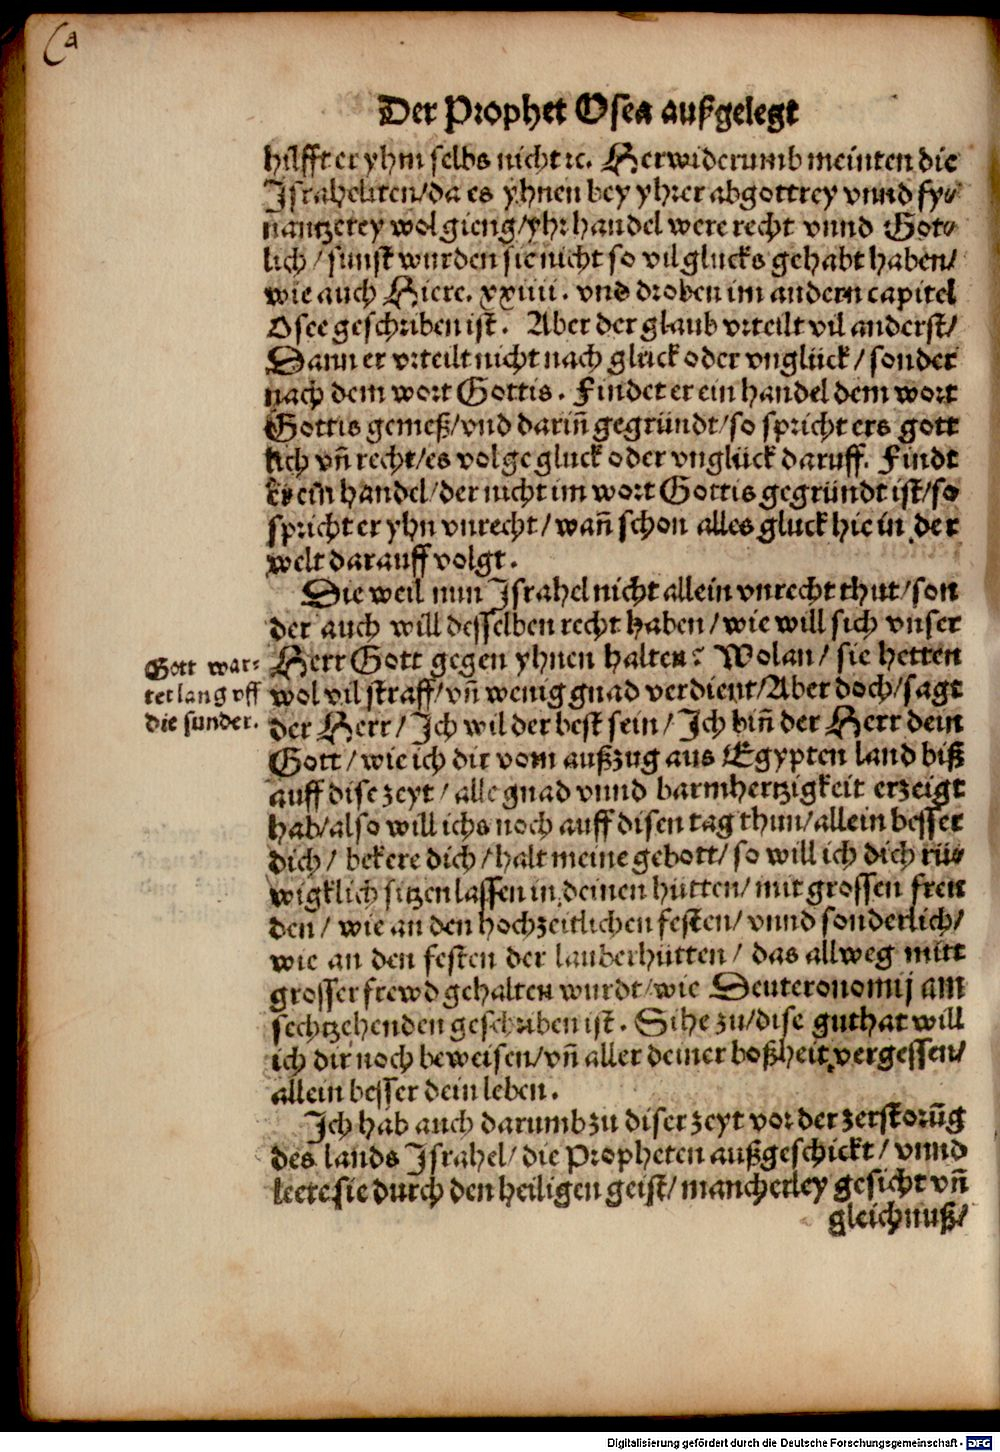 Der Prophet Osea außgelegt
hilfft er yhm selbs nicht ⁊c. Herwiderumb meinten die
Israheliten/da es yhnen bey yhrer abgottrey vnnd fy⸗
nantzerey wol gieng/yhr handel were recht vnnd Got⸗
lich/sunst wurden sie nicht so vil glucks gehabt haben/
wie auch Hiere. xxiiii. vnd droben im andern capitel
Osee geschriben ist. Aber der glaub vrteilt vil anderst/
Dann er vrteilt nicht nach glück oder vnglück/sonder
nach dem wort Gottis. Findet er ein handel dem wort
Gottis gemeß/vnd dariñ gegründt/so spricht ers gott
lich vñ recht/es volge gluck oder vnglück daruff. Findt
er ein handel/der nicht im wort Gottis gegründt ist/so
spricht er yhn vnrecht/wañ schon alles gluck hie in der
welt darauff volgt.
Die weil nun Israhel nicht allein vnrecht thut/son
der auch will desselben recht haben/wie will sich vnser
Gott war⸗
tet lang vff
die sunder.
Herr Gott gegen yhnen halten? Wolan/sie hetten
wol vil straff/vñ wenig gnad verdient/Aber doch/sagt
der Herr/Ich wil der best sein/Ich biñ der Herr dein
Gott/wie ich dir vom außzug aus Egypten land biß
auff dise zeyt/alle gnad vnnd barmhertzigkeit erzeigt
hab/also will ichs noch auff disen tag thun/allein besser
dich/bekere dich/halt meine gebott/so will ich dich rü⸗
wigklich sitzen lassen in deinen hütten/mit grossen freu
den/wie an den hochzeitlichen festen/vnnd sonderlich/
wie an den festen der lauberhütten/das allweg mitt
grosser frewd gehalten wurdt/wie Deuteronomij am
sechtzehenden geschriben ist. Sihe zu/dise guthat will
ich dir noch beweisen/vñ aller deiner boßheit vergessen/
allein besser dein leben.
Ich hab auch darumb zu diser zeyt vor der zerstorũg
des lands Israhel/die Propheten außgeschickt/vnnd
leere sie durch den heiligen geist/mancherley gesicht vñ
gleichnuß/
Digitalisierung gefördert durch die Deutsche Forschungsgemeinschaft - DFG